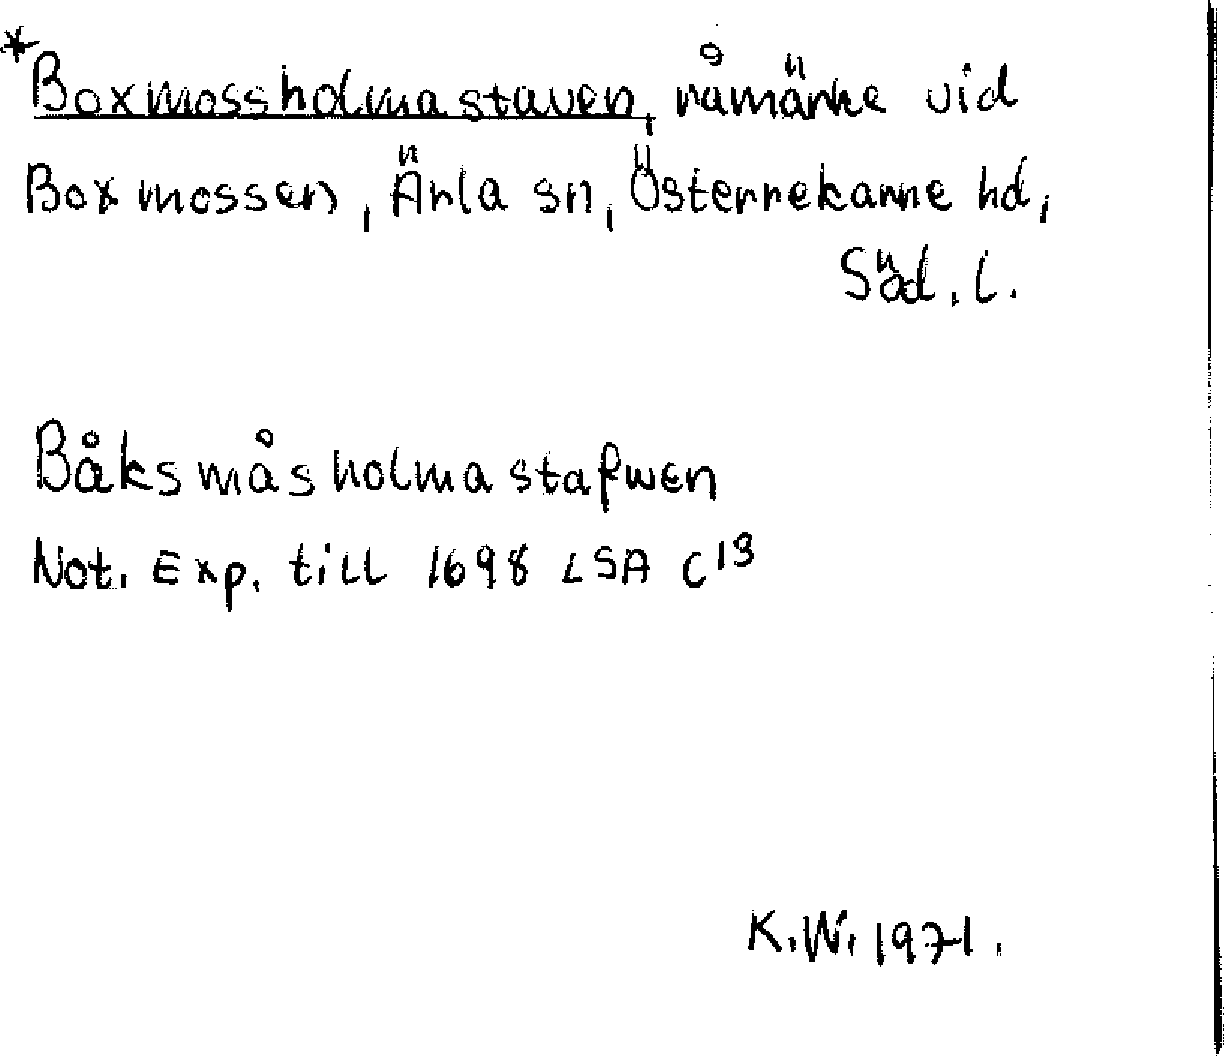 *Boxmossholmastaven, råmärke vid
Boxmossen, Ärla sn, Österrekarne hd,
Söd. l.
Båksmåsholmastafwen
Not. Exp. till 1698 LSA C13
K.W. 1971.